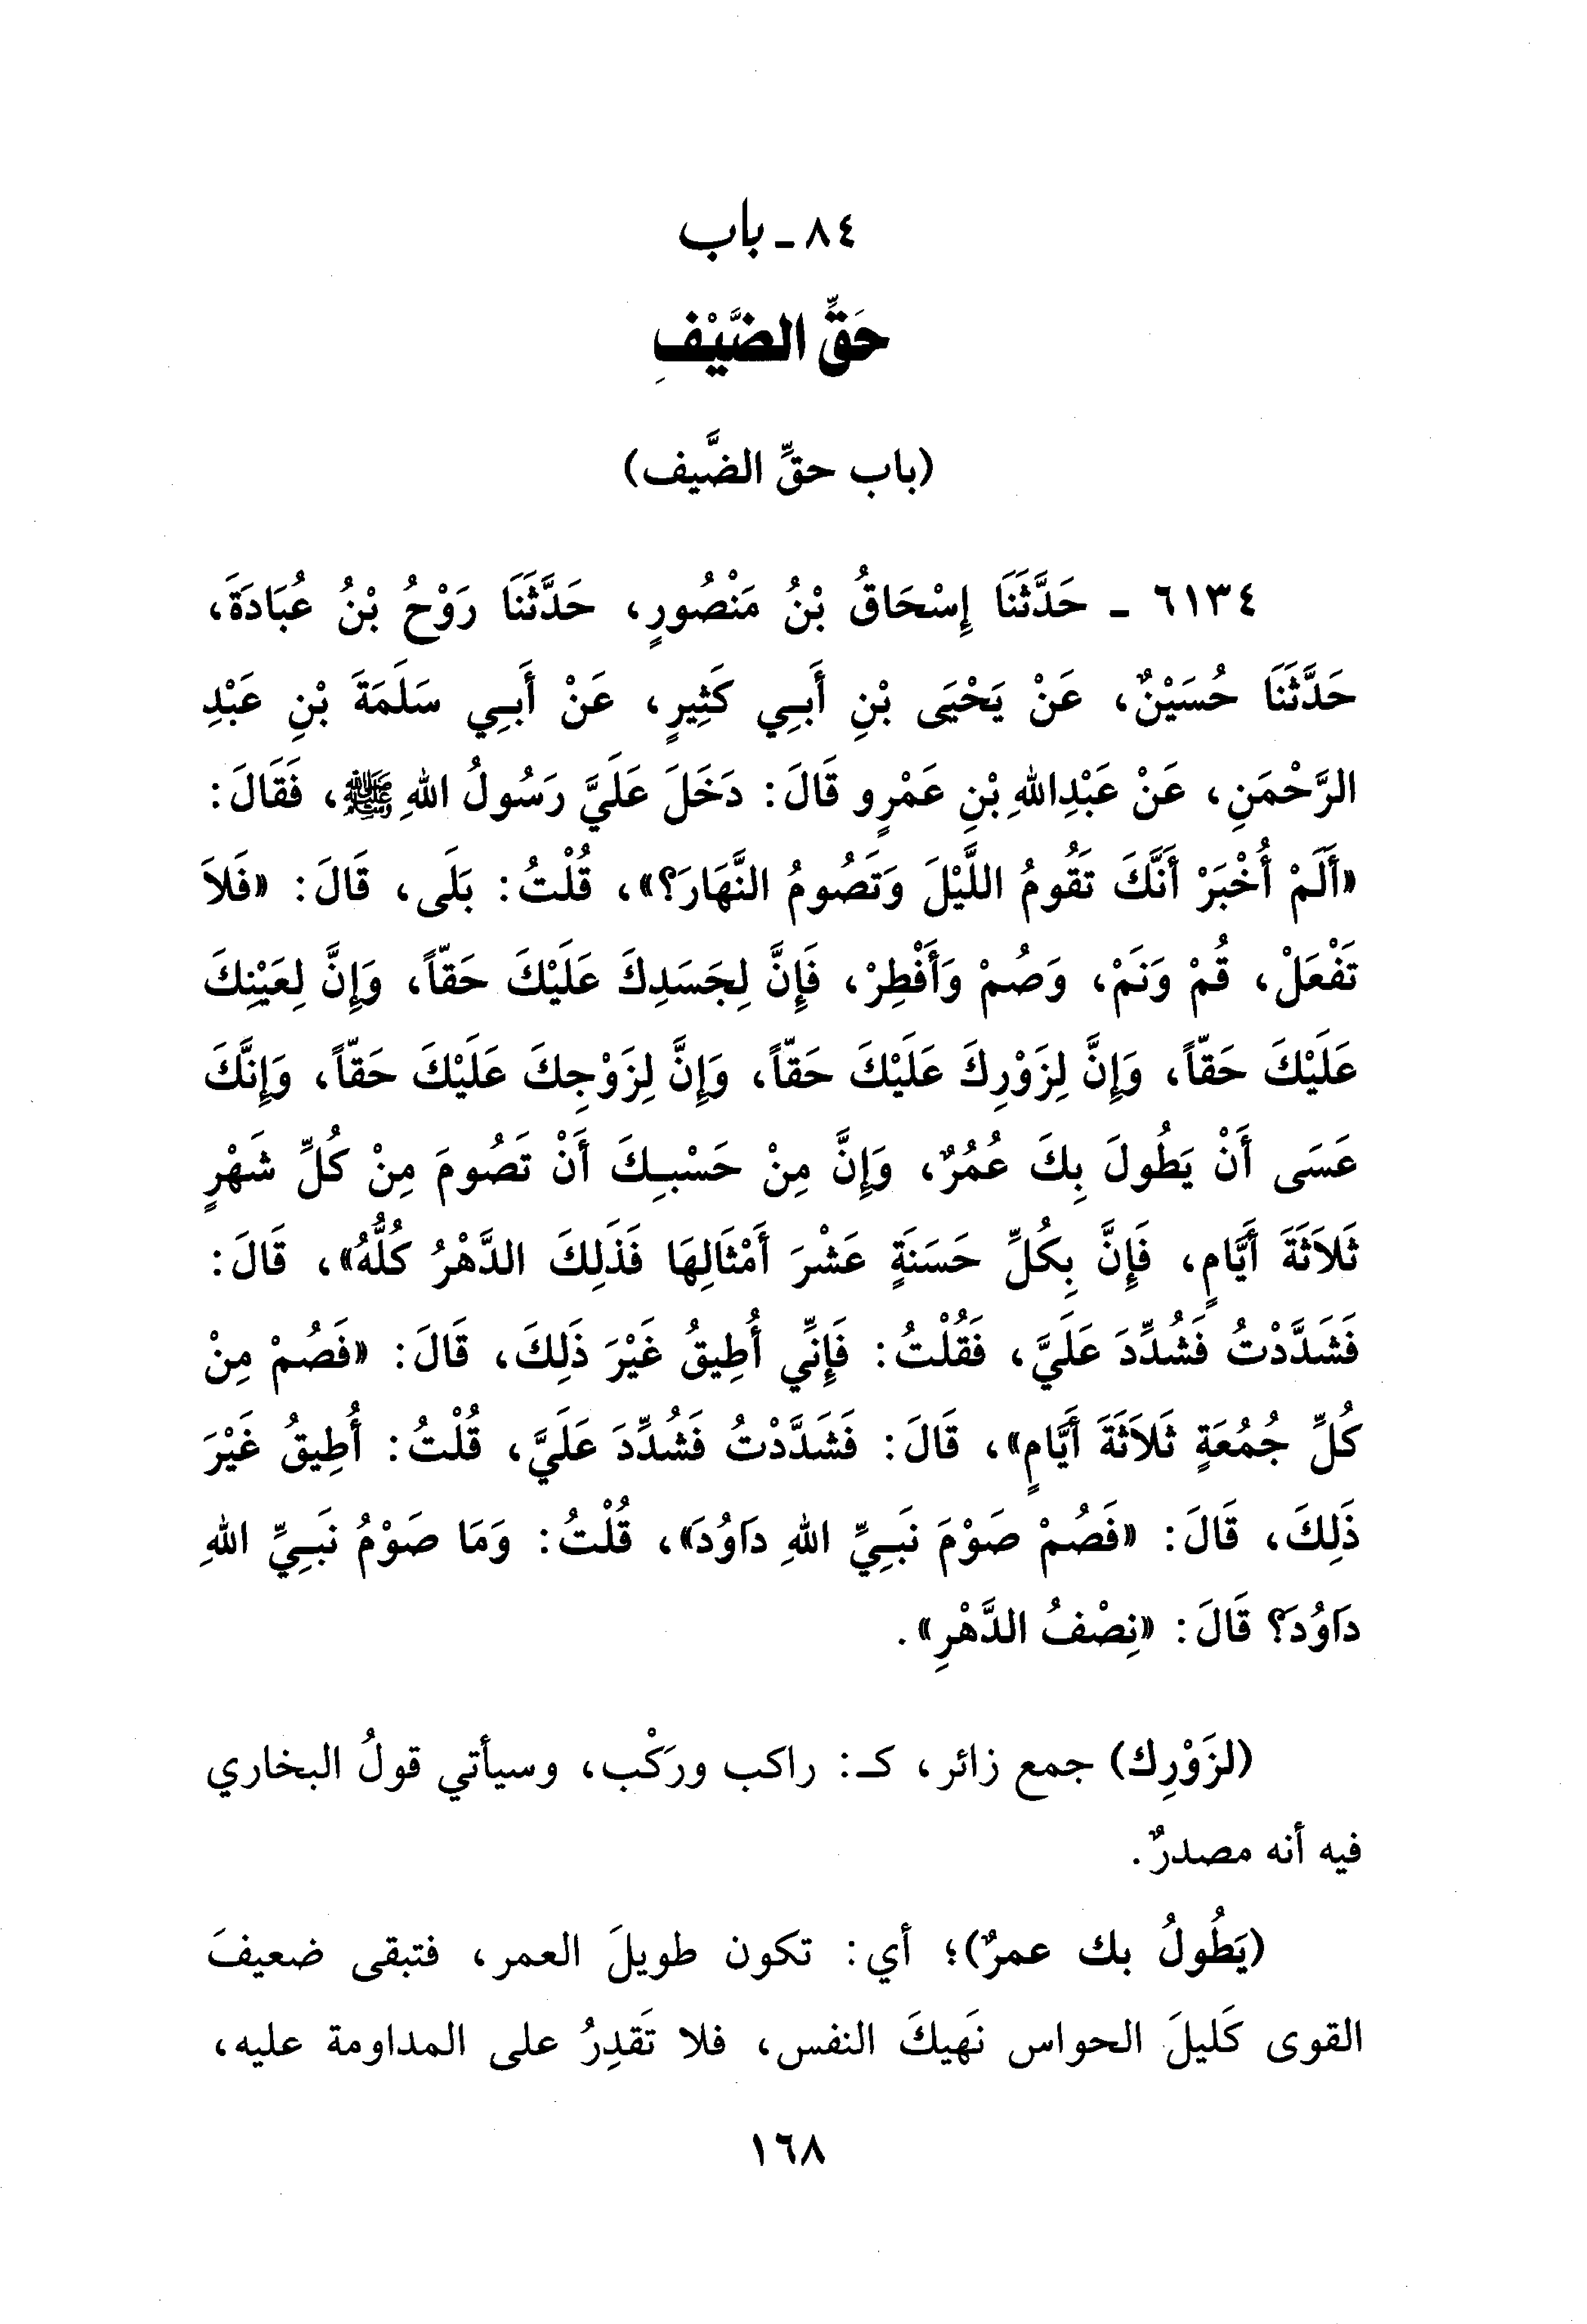 ٨٤ - باب
حَقِّ الضَّيْفِ
(باب حقِّ الضَّيف)
٦١٣٤ - حَدَّثَنَا إِسْحَاقُ بْنُ مَنْصُورٍ، حَدَّثَنَا رَوْحُ بْنُ عُبَادَةَ،
حَدَّثَنَا حُسَيْنٌ، عَنْ يَحْيَى بْنِ أَبِي كَثِيرٍ، عَنْ أَبِي سَلَمَةَ بْنِ عَبْدِ
الرَّحْمَنِ، عَنْ عَبْدِاللهِ بْنِ عَمْرٍو قَالَ: دَخَلَ عَلَيَّ رَسُولُ اللهِ ﷺ، فَقَالَ:
«أَلَمْ أُخْبَرْ أَنَّكَ تَقُومُ اللَّيْلَ وَتَصُومُ النَّهَارَ؟»، قُلْتُ: بَلَى، قَالَ: «فَلاَ
تَفْعَلْ، قُمْ وَنَمْ، وَصُمْ وَأَفْطِرْ، فَإِنَّ لِجَسَدِكَ عَلَيْكَ حَقّاً، وَإِنَّ لِعَيْنِكَ
عَلَيْكَ حَقّاً، وَإِنَّ لِزَوْرِكَ عَلَيْكَ حَقّاً، وَإِنَّ لِزَوْجِكَ عَلَيْكَ حَقّاً، وَإِنَّكَ
عَسَى أَنْ يَطُولَ بِكَ عُمُرٌ، وَإِنَّ مِنْ حَسْبِكَ أَنْ تَصُومَ مِنْ كُلِّ شَهْرٍ
ثَلاَثَةَ أَيَّامٍ، فَإِنَّ بِكُلِّ حَسَنَةٍ عَشْرَ أَمْثَالِهَا فَذَلِكَ الدَّهْرُ كُلُّهُ»، قَالَ:
فَشَدَّدْتُ فَشُدِّدَ عَلَيَّ، فَقُلْتُ: فَإِنِّي أُطِيقُ غَيْرَ ذَلِكَ، قَالَ: «فَصُمْ مِنْ
كُلِّ جُمُعَةٍ ثَلاَثَةَ أَيَّامٍ»، قَالَ: فَشَدَّدْتُ فَشُدِّدَ عَلَيَّ، قُلْتُ: أُطِيقُ غَيْرَ
ذَلِكَ، قَالَ: «فَصُمْ صَوْمَ نَبِيِّ اللهِ دَاوُدَ»، قُلْتُ: وَمَا صَوْمُ نَبِيِّ اللهِ
دَاوُدَ؟ قَالَ: «نِصْفُ الدَّهْرِ».
(لزَوْرِك) جمع زائر، كـ: راكب ورَكْب، وسيأتي قولُ البخاري
فيه أنه مصدرٌ.
(يَطُولُ بك عمرٌ)؛ أي: تكون طويلَ العمر، فتبقى ضعيفَ
القوى كَليلَ الحواس نَهيكَ النفس، فلا تَقدِرُ على المداومة عليه،
١٦٨